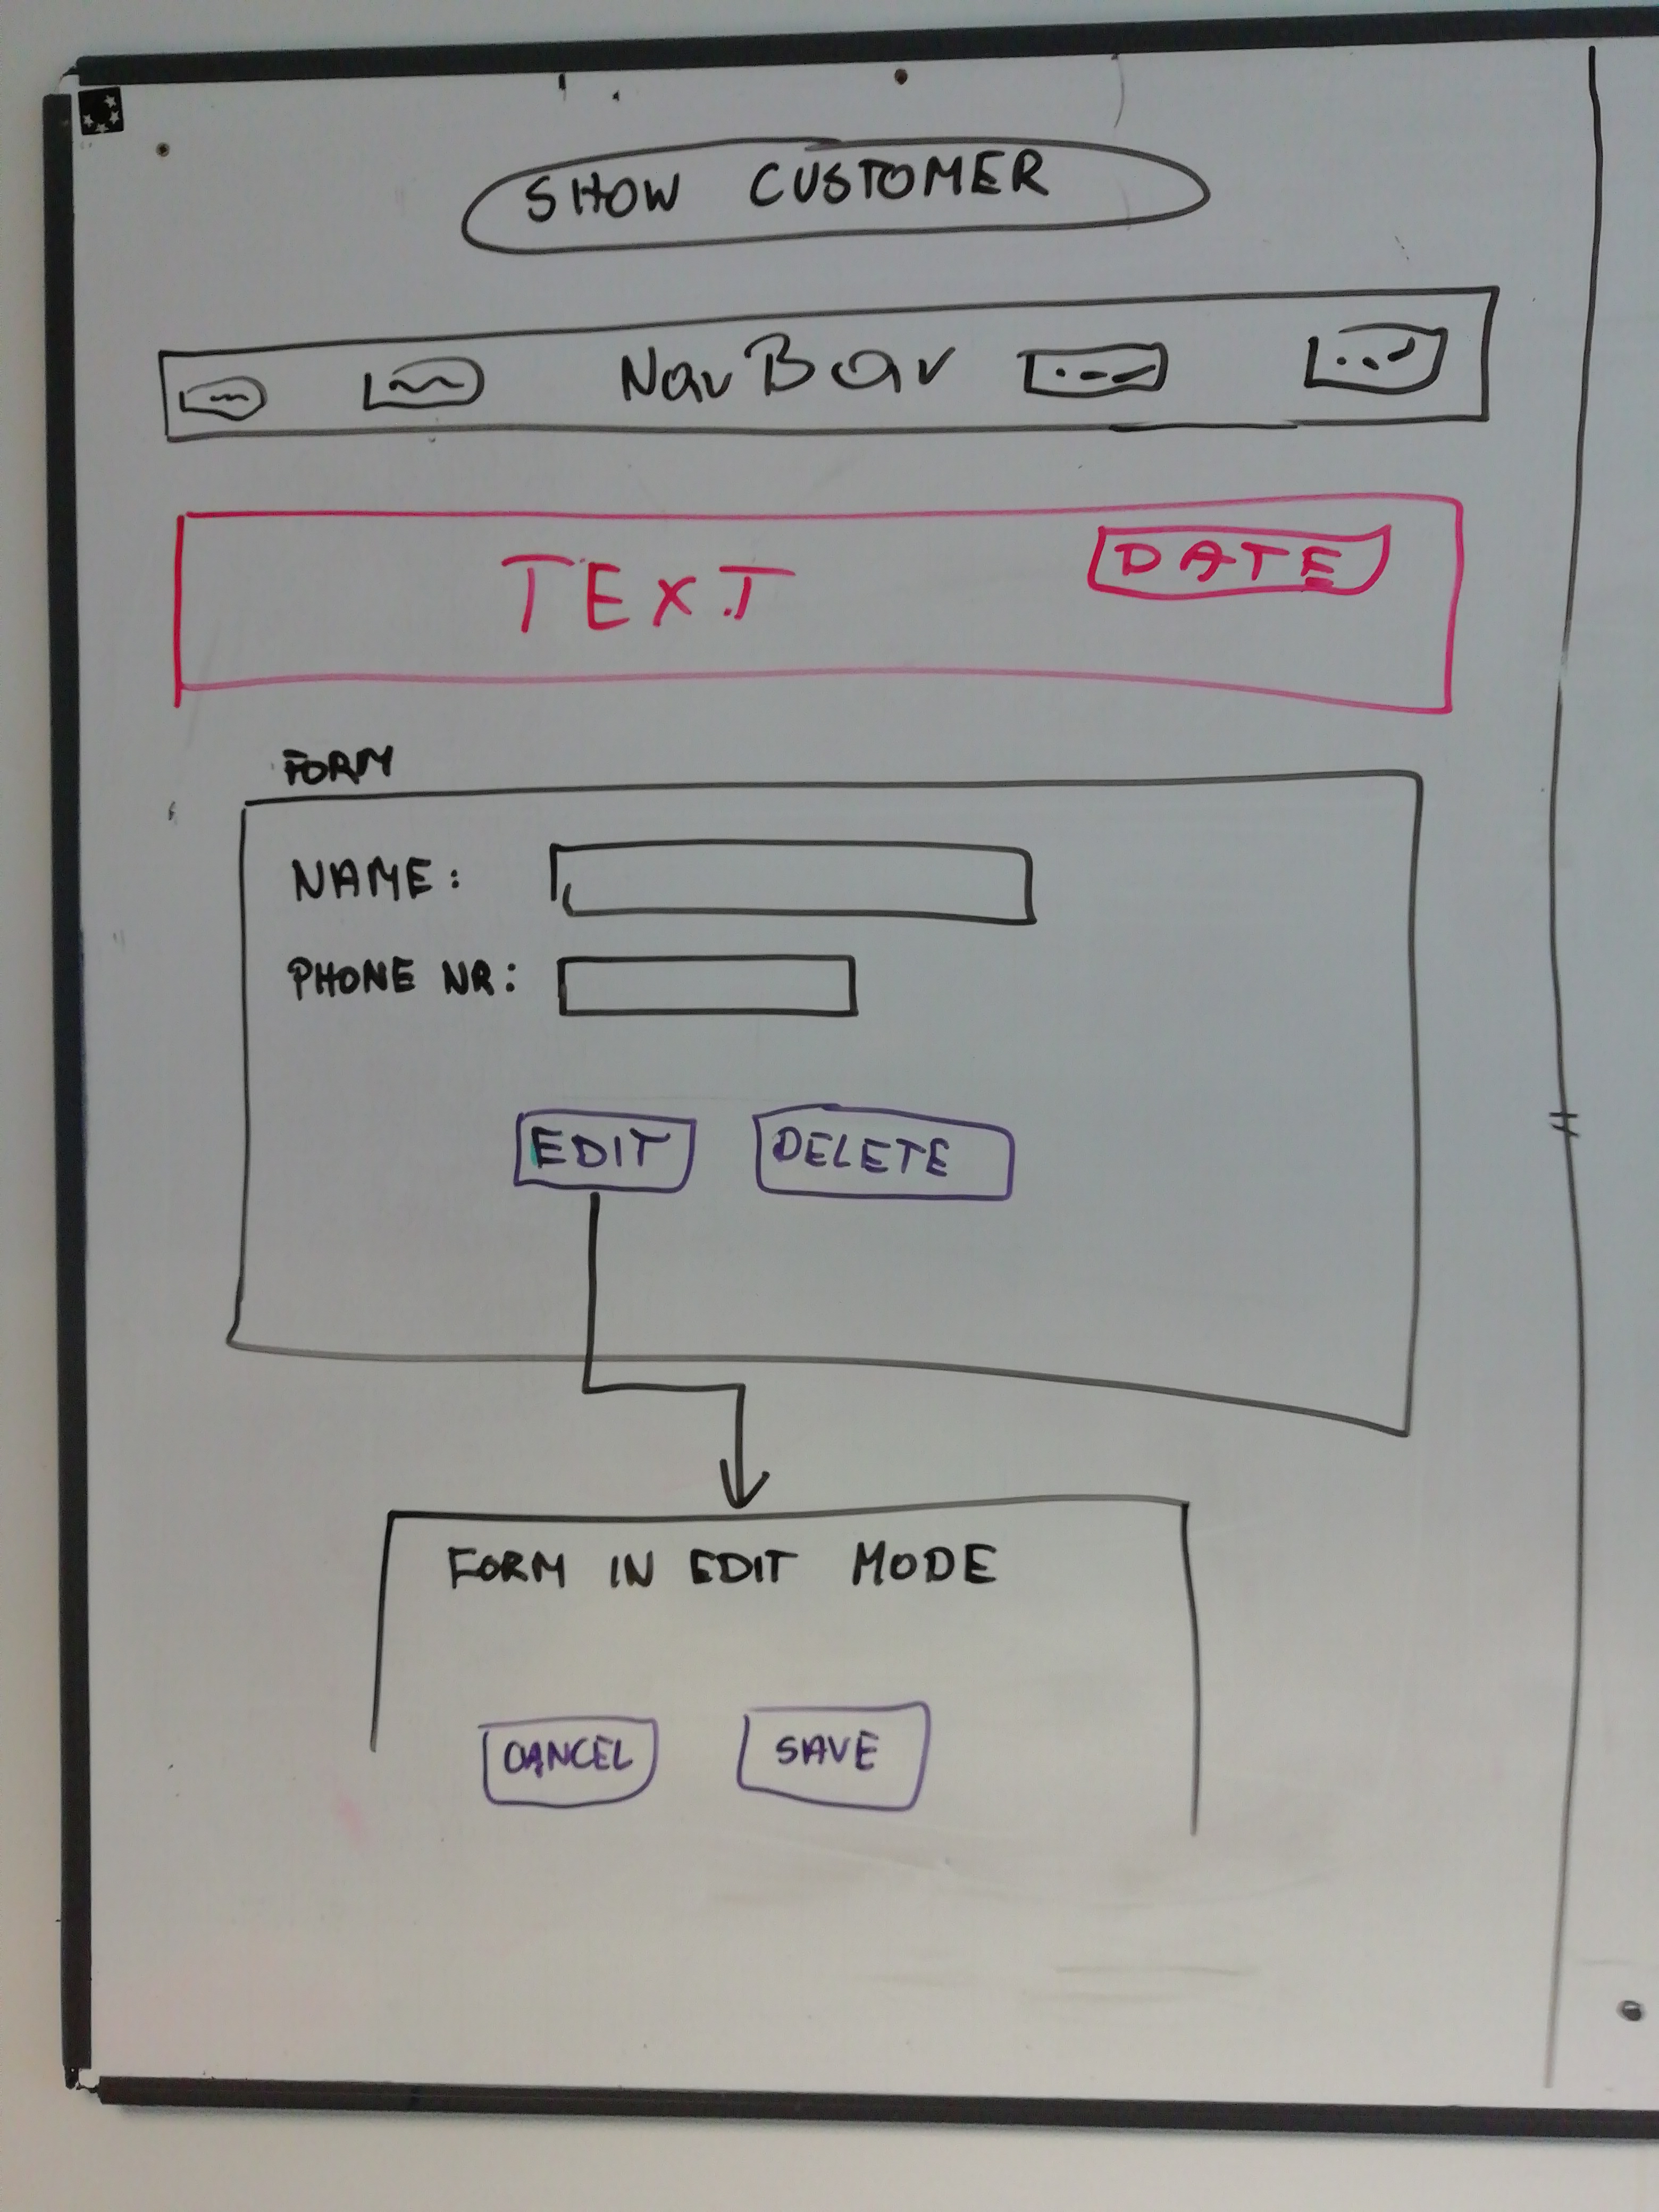 SHOW CUSTOMER
NavBar
TEXT DATE
FORM
NAME:
PHONE NR:
EDIT DELETE
FORM IN EDIT MODE
CANCEL SAVE